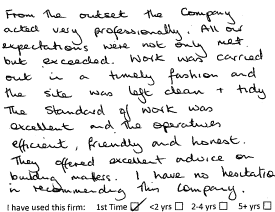 From the outset the Company
acted very professionally. All our
expectations were not only met
but exceeded. Work was carried
out in a timely fashion and
the site was left clean + tidy
The Standard of work was
excellent and the operatives
efficient, friendly and honest.
They offered excellent advice on
building matters. I have no hesitation
in recommending this Company.
I have used this firm: 1st Time ☑ <2 yrs ☐ 2-4 yrs ☐ 5+ yrs ☐